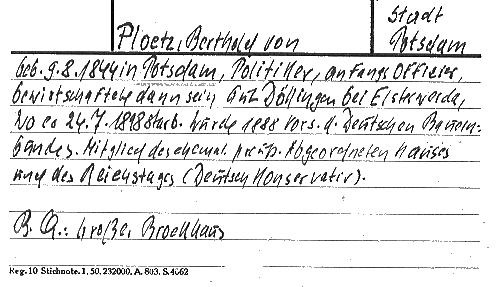 Ploetz, Berthold von
Stadt
Potsdam
geb. 9.8.1844 in Potsdam, Politiker, anfangs Offizier,
bewirtschaftete dann sein Gut Döllingen bei Elsterwerda,
wo er 24.7.1898 starb. wurde 1888 Vors. d. Deutschen Bauern-
bundes. Mitglied des ehemal. preuß. Abgeordneten Hauses
und des Reichstages (Deutsch Konservativ).
B. Q.: Große, Brockhaus
Reg. 10 Stichnote. 1, 50, 232000. A. 803. S. 4662